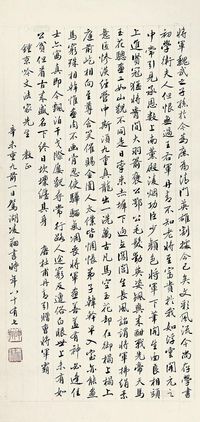 將軍魏武之子孫於今為庶為清門英雄割據今已矣文彩風流今尚存學書
初學衛夫人但恨無過王右軍丹青不知老將至富貴於我如浮雲開元之
中常引見承恩數上南薰殿凌煙功臣少顏色將軍下筆開生面良相頭
上進賢冠猛將腰間大羽箭褒公鄂公毛髮動英姿颯爽來酣戰先帝天馬
玉花驄畫工如山貌不同是日牽來赤墀下迥立閶闔生長風詔謂將軍拂絹素
意匠慘澹經營中斯須九重真龍出一洗萬古凡馬空玉花却在御榻上榻上
庭前屹相向至尊含笑催賜金圉人太僕皆惆悵弟子韓幹早入室亦能畫
馬窮殊相幹惟畫肉不畫骨忍使驊騮氣凋喪將軍畫善蓋有神必逢佳
士亦寫真即今飄泊干戈際屢貌尋常行路人途窮反遭俗白眼世上未有如
公貧但看古來盛名下終日坎壈纏其身 唐杜甫丹青引贈曹將軍霸
法家先生 教正
辛未重九前一日 書時年八十有